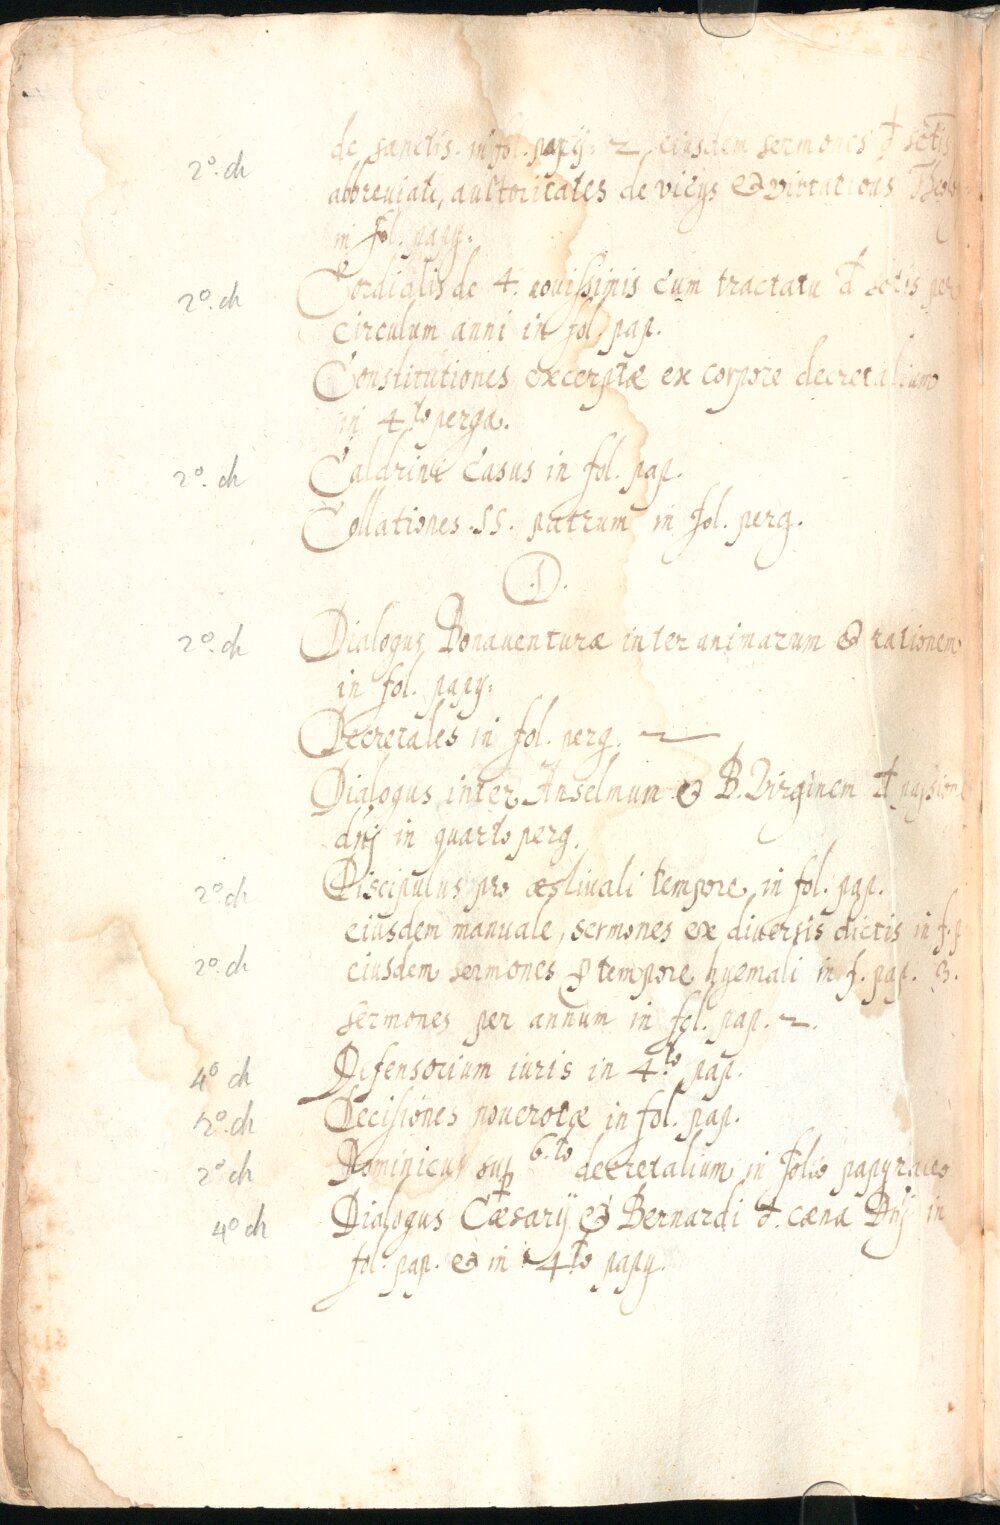 de sanctis. in fol. papy: 2 eiusdem sermones đ sctis
2º. ch
abbreuiati, auctoritates de vicÿs & virtutibus
in fol. papy.
Cordialis de 4. nouissimis cum tractatu đ sctis per
2º. ch
circulum anni in fol. pap.
Constitutiones excerptæ ex corpore decretalium
in 4to perga.
2º. ch Caldrini Casus in fol. pap.
Collationes .SS. patrum in fol. perg.
.D.
2º. ch Dialogus Bonauenturæ inter animarum & rationem
in fol. papy.
Decretales in fol. perg.
Dialogus inter Anselmum & B. Virginem đ passione
dnj in quarto perg.
2º. ch Discipulus pro æstiuali tempore in fol. pap.
eiusdem manuale, sermones ex diuersis dictis in f. p
2º. ch eiusdem sermones ꝑ tempore hyemali in f. pap. 3.
sermones per annum in fol. pap. 2.
4º ch Defensorium iuris in 4.to pap.
2º. ch Decisiones nouerotæ in fol. pap.
2º ch Dominicus suꝑ 6.to decretalium in folio papyraceo
4º ch Dialogus Cæsarij & Bernardi đ. cæna Dnj in
fol. pap. & in 4.to papy.